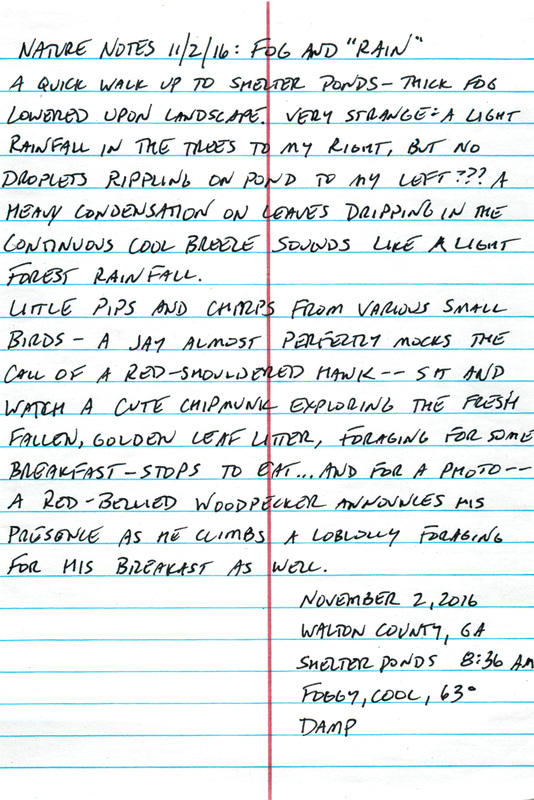 NATURE NOTES 11/2/16: FOG AND "RAIN"
A QUICK WALK UP TO SHELTER PONDS – THICK FOG
LOWERED UPON LANDSCAPE. VERY STRANGE: A LIGHT
RAINFALL IN THE TREES TO MY RIGHT, BUT NO
DROPLETS RIPPLING ON POND TO MY LEFT??? A
HEAVY CONDENSATION ON LEAVES DRIPPING IN THE
CONTINUOUS COOL BREEZE SOUNDS LIKE A LIGHT
FOREST RAINFALL.
LITTLE PIPS AND CHIRPS FROM VARIOUS SMALL
BIRDS – A JAY ALMOST PERFERTLY MOCKS THE
CALL OF A RED-SHOULDERED HAWK -- SIT AND
WATCH A CUTE CHIPMUNK EXPLORING THE FRESH
FALLEN, GOLDEN LEAF LITTER, FORAGING FOR SOME
BREAKFAST – STOPS TO EAT... AND FOR A PHOTO --
A RED-BELLIED WOODPECKER ANNOUNCES HIS
PRESENCE AS HE CLIMBS A LOBLOLLY FORAGING
FOR HIS BREAKAST AS WELL.
NOVEMBER 2, 2016
WALTON COUNTY, GA
SHELTER PONDS 8:36 AM
FOGGY, COOL, 63°
DAMP